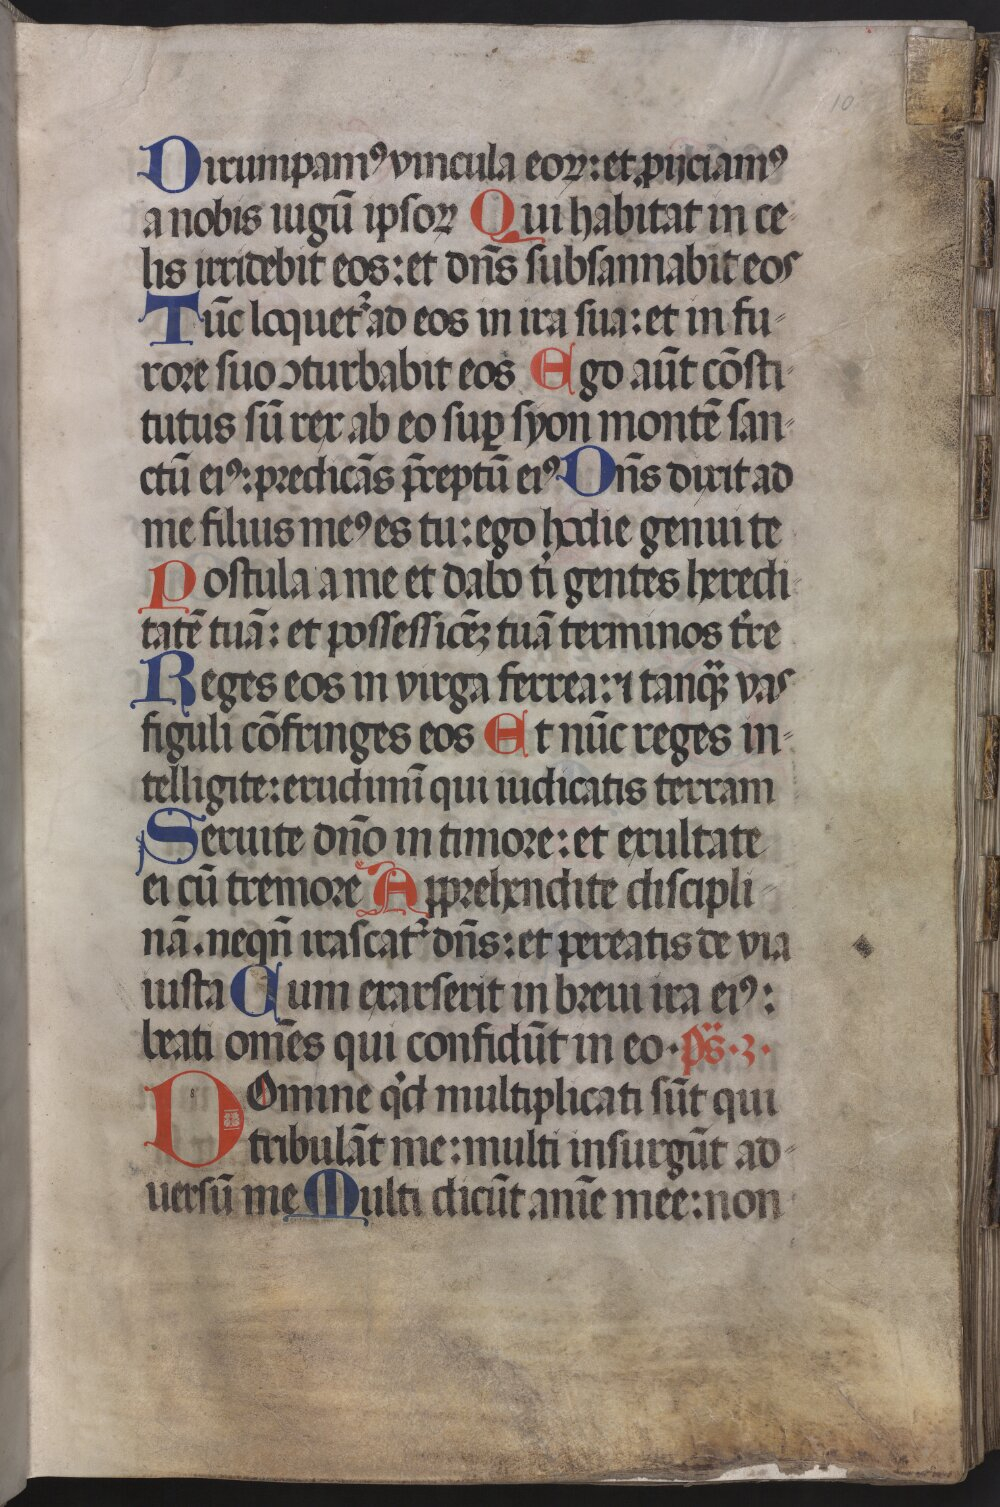 10
Dirumpamꝰ vincula eoꝝ: et ꝓijciamꝰ
a nobis iugū ipsoꝝ Qui habitat in ce-
lis irridebit eos: et dn̄s subsannabit eos
Tūc loquet᷑ ad eos in ira sua: et in fu-
rore suo ↄturbabit eos Ego aūt cōsti-
tutus sū rex ab eo suꝑ syon montē san-
ctū eiꝰ: predicās p̄ceptū eiꝰ Dn̄s dixit ad
me filius meꝰ es tu: ego hodie genui te
Postula a me et dabo ti gentes heredi
tatē tuā: et possessiōeȝ tuā terminos t̄re
Reges eos in virga ferrea: ⁊ tanqꝫ vas
figuli cōfringes eos Et nūc reges in-
telligite: erudimī qui iudicatis terram
Seruite dn̄o in timore: et exultate
ei cū tremore Apprehendite discipli-
nā. neqn̄ irascat᷑ dn̄s: et pereatis de via
iusta Cum exarserit in breui ira eiꝰ:
beati om̄es qui confidūt in eo· ps̄·3·
Domine qd multiplicati sūt qui
tribulāt me: multi insurgūt ad-
uersū me Multi dicūt anīe mee: non